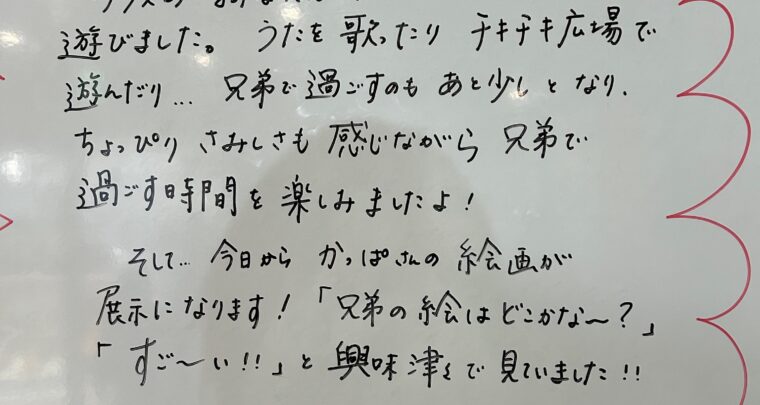 遊びました。 うたを歌ったり チキチキ広場で
遊んだり… 兄弟で過ごすのもあと少しとなり、
ちょっぴりさみしさも感じながら兄弟で
過ごす時間を楽しみましたよ!
そして… 今日からかっぱさんの絵画が
展示になります!「兄弟の絵はどこかな〜?」
「すご〜い!!」と興味津々で見ていました!!